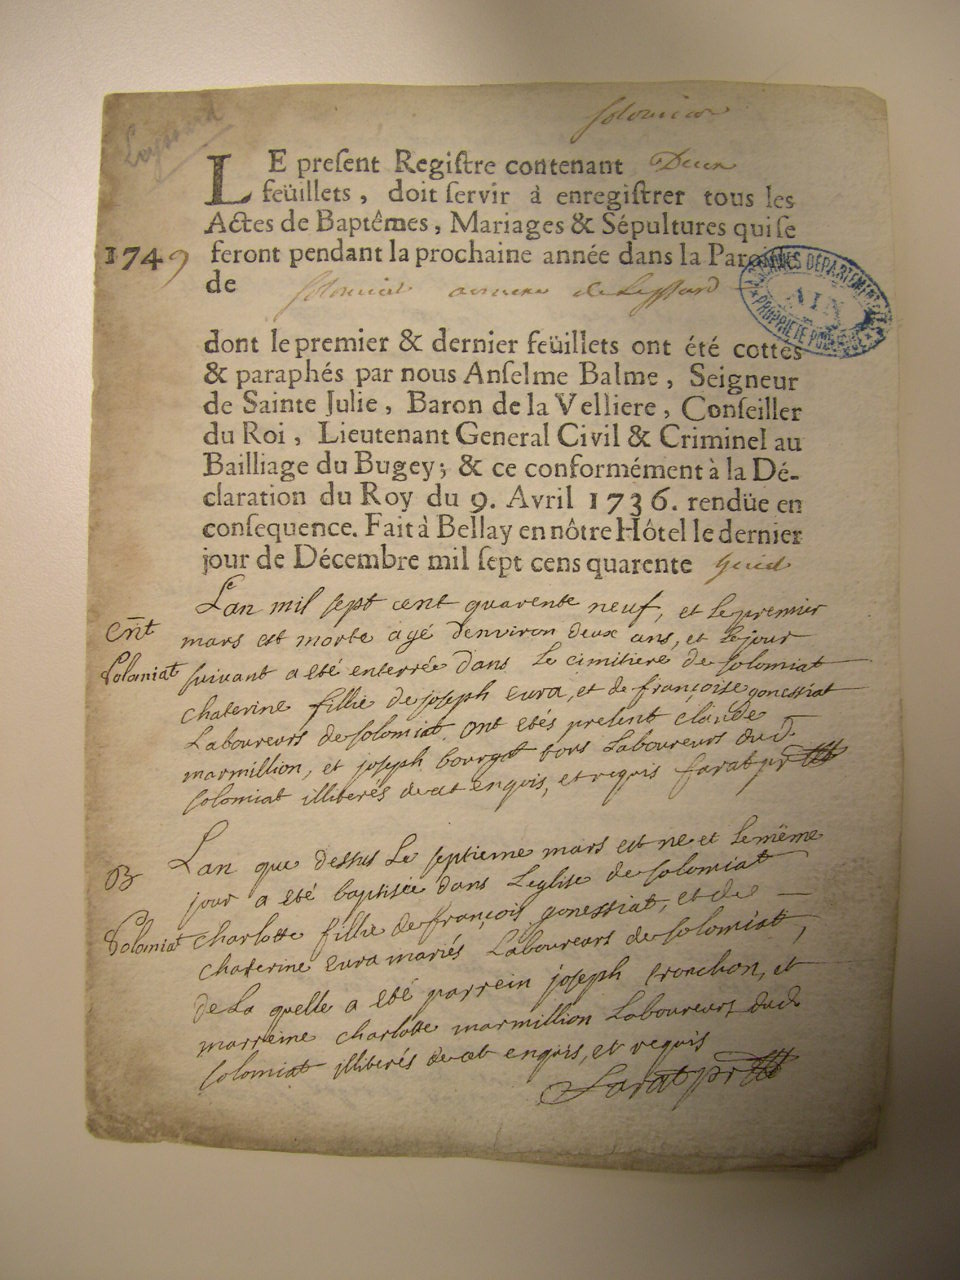 Leyssard
Solomiat
LE preſent Regiſtre contenant Deux
feüillets, doit ſervir à enregiſtrer tous les
Actes de Baptêmes, Mariages & Sépultures qui ſe
1749 feront pendant la prochaine année dans la Paroiſſe
de Solomiat annexe de Leyssard
ARCHIVES DEPARTEMENTALES
AIN
PROPRIETE PUBLIQUE
dont le premier & dernier feüillets ont été cottés
& paraphés par nous Anſelme Balme, Seigneur
de Sainte Julie, Baron de la Velliere, Conſeiller
du Roi, Lieutenant General Civil & Criminel au
Bailliage du Bugey; & ce conformément à la Dé-
claration du Roy du 9. Avril 1736. rendüe en
conſequence. Fait à Bellay en nôtre Hôtel le dernier
jour de Décembre mil ſept cens quarente huict
Lan mil sept cent quarente neuf, et le premier
Ent mars est morte agé denviron deux ans, et le jour
Solomiat suivant a eté enterrée dans le cimitiere de solomiat
chaterine fillie de joseph eura, et de françoise gonessiat
Laboureurs de solomiat ont etés present claude
marmillion, et joseph bourgat tous Laboureurs dud
solomiat illiterés de cet enquis, et requis farat ptre
B Lan que dessus Le septieme mars est ne et le même
jour a eté baptisée dans Leglise de solomiat
Solomiat charlotte fillie de françois gonessiat, et de
chaterine eura mariés Laboureurs de solomiat,
de La quelle a eté parrein joseph tronchon, et
marreine charlotte marmillion Laboureurs dud
solomiat illiterés de cet enquis, et requis
farat ptre